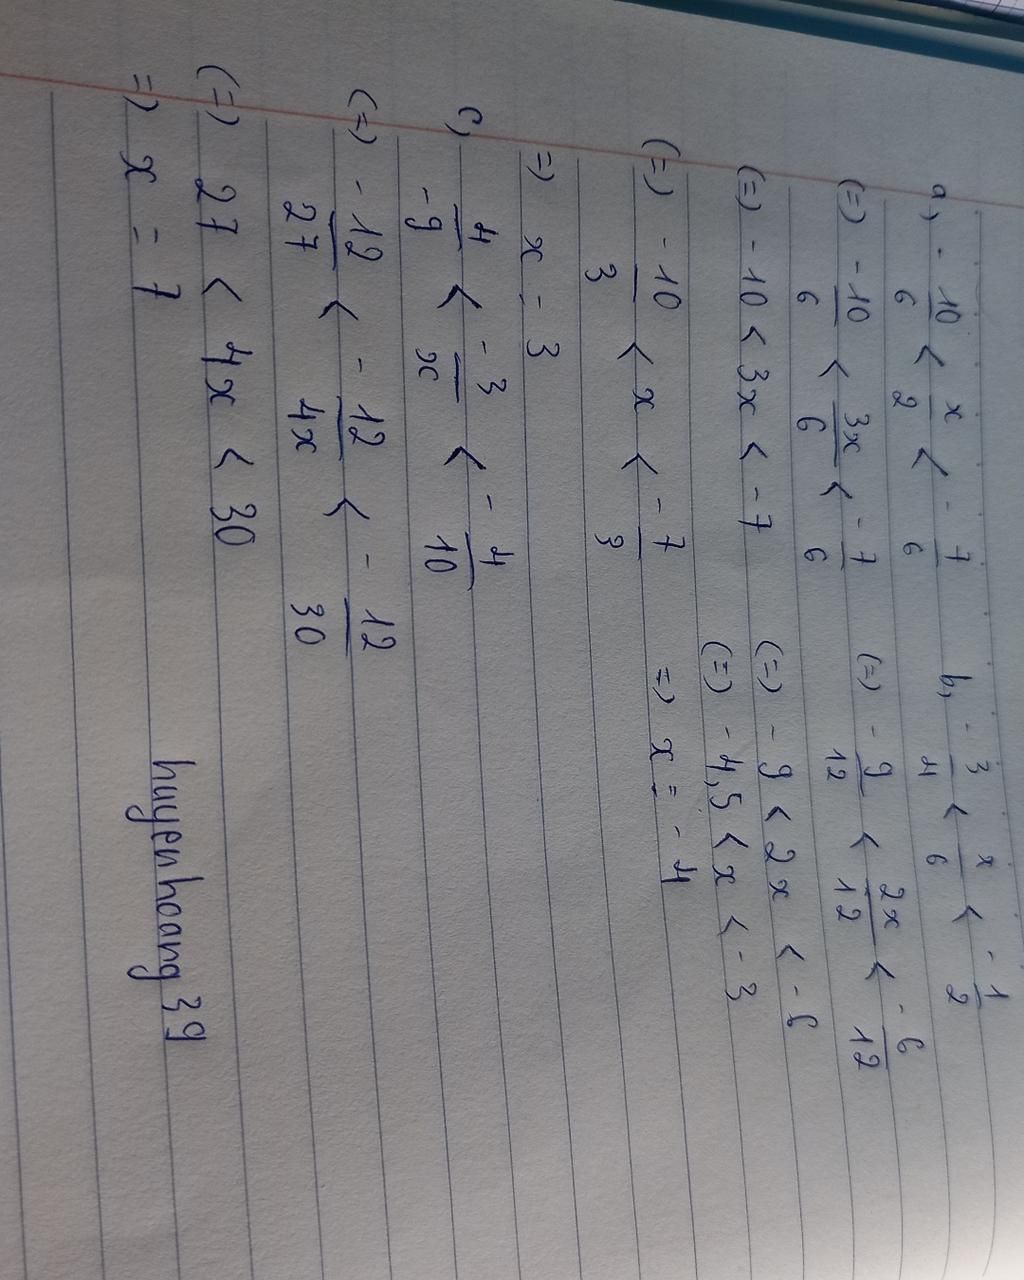 a, -10/6 < x/2 < -7/6
(=) -10/6 < 3x/6 < -7/6
(=) -10 < 3x < -7
(=) -10/3 < x < -7/3
=) x = -3
b, -3/4 < x/6 < -1/2
(=) -9/12 < 2x/12 < -6/12
(=) -9 < 2x < -6
(=) -4,5 < x < -3
=) x = -4
c, 4/-9 < -3/x < -4/10
(=) -12/27 < -12/4x < -12/30
(=) 27 < 4x < 30
=) x = 7
huyenhoang39